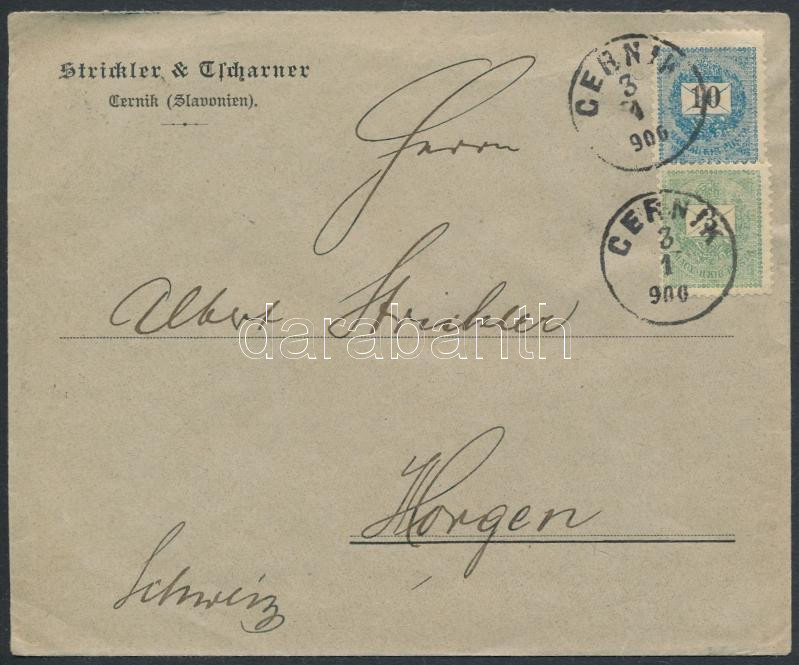 Strickler & Tscharner
Cernik (Slavonien).
CERNIK
3
1
900
10
CERNIK
3
1
900
3
MAGYAR KIR. POSTA
Herrn
Albert Strickler
darabanth
Horgen
Schweiz